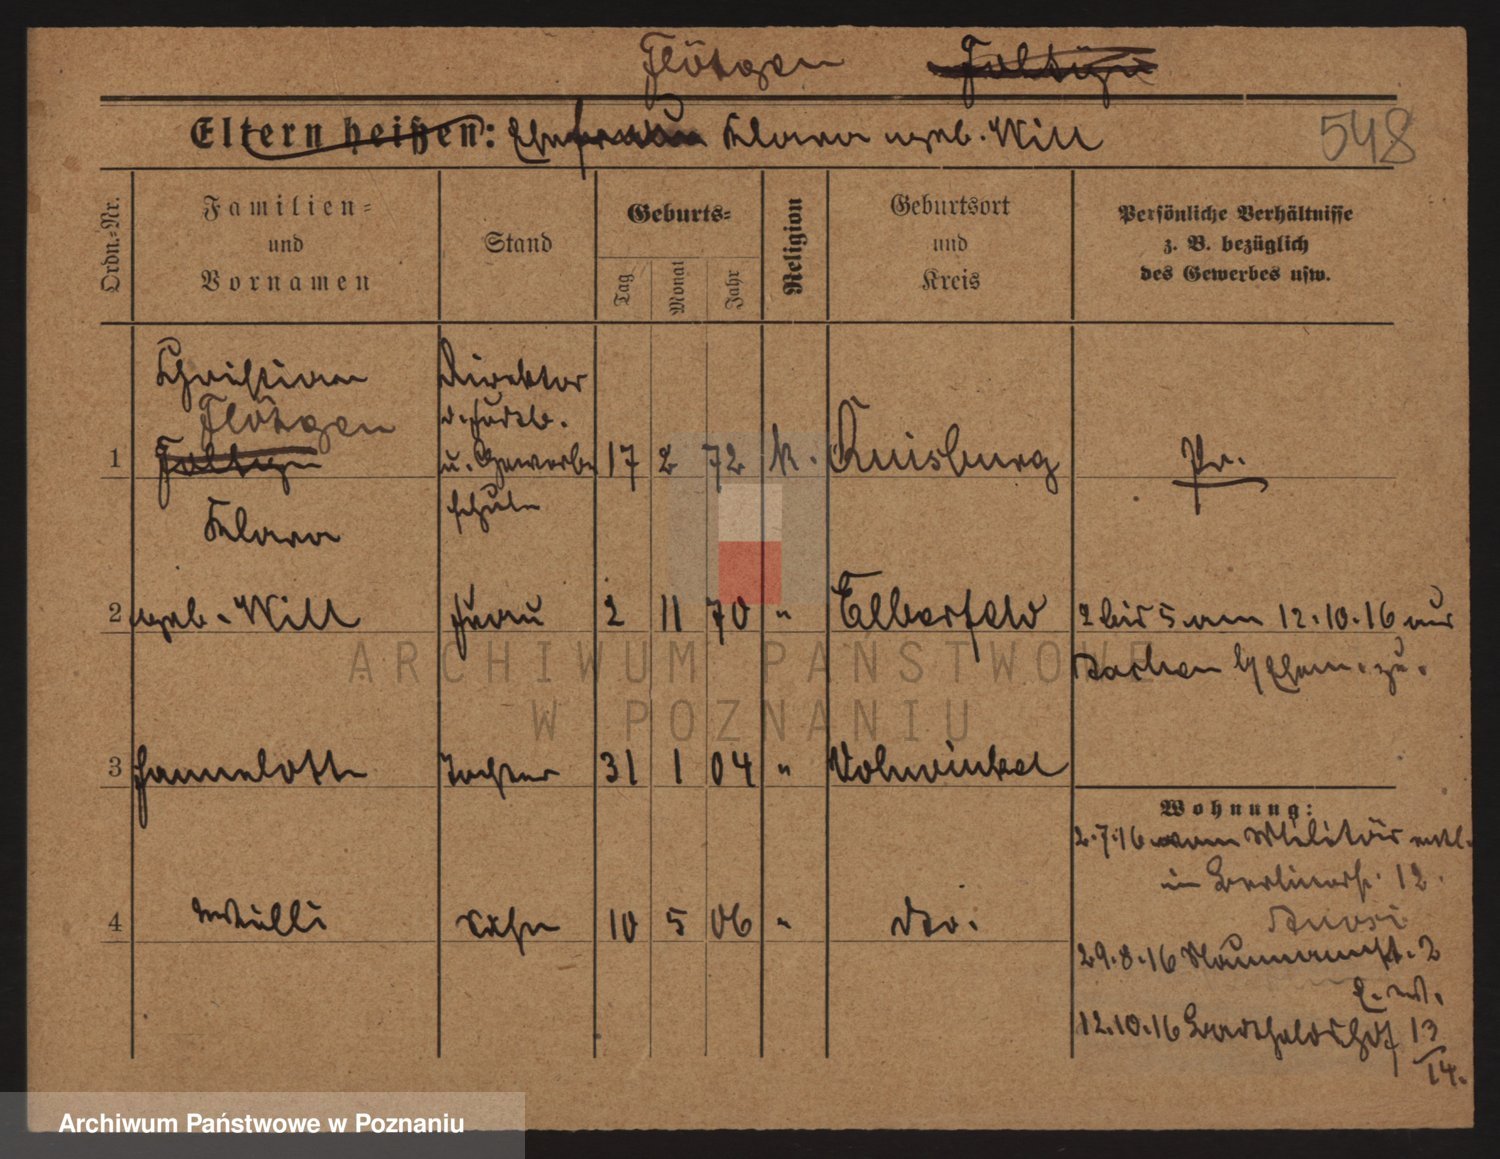 Flötgen
Eltern heißen: Klara geb. Will
548
Ordn.-Nr.
Familien- und Vornamen
Stand
Geburts-
Tag
Monat
Jahr
Religion
Geburtsort und Kreis
Persönliche Verhältnisse
z. B. bezüglich
des Gewerbes usw.
Christian
Flötgen
Direktor
u. Gewerbe
schule
1
17 2 72 k. Duisburg Pr.
Klara
2 geb. Will Frau 2 11 70 " Elberfeld 2 bis 5 am 12.10.16 aus
Aachen
3 Hannelotte Tochter 31 1 04 " Vohwinkel
Wohnung:
2.7.16 vom Militär
in Berlinerstr. 12.
4 Willi Sohn 10 5 06 " dto.
29.8.16 Naumannstr. 2
12.10.16 13/14.
ARCHIWUM PAŃSTWOWE
W POZNANIU
Archiwum Państwowe w Poznaniu